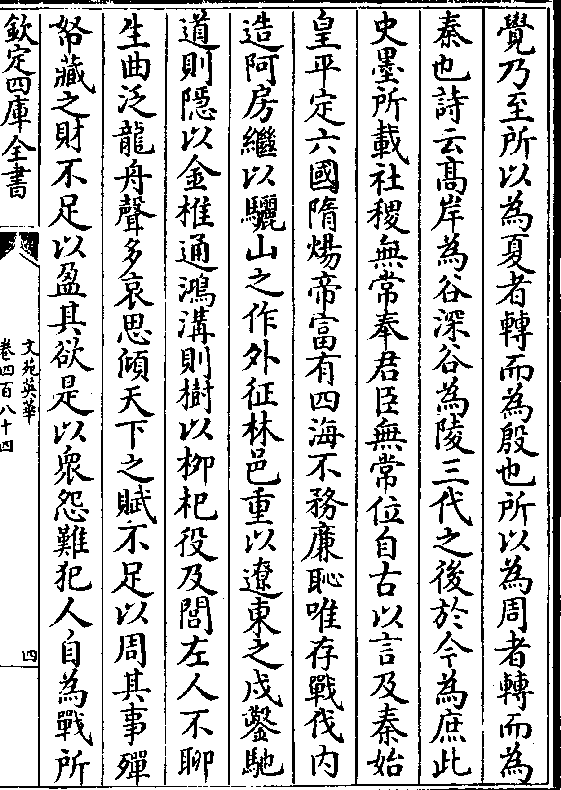 覺乃至所以為夏者轉而為殷也所以為周者轉而為
秦也詩云髙岸為谷深谷為陵三代之後於今為庶此
史墨所載社稷無常奉君臣無常位自古以言及秦始
皇平定六國隋煬帝富有四海不務亷恥唯存戰伐内
造阿房繼以驪山之作外征林邑重以遼東之戍鑿馳
道則隠以金椎通鴻溝則樹以栁杞役及閭左人不聊
生曲泛龍舟聲多哀思傾天下之賦不足以周其事殫
帑藏之財不足以盈其欲是以衆怨難犯人自為戰所
欽定四庫全書
文苑英華
卷四百八十四
四